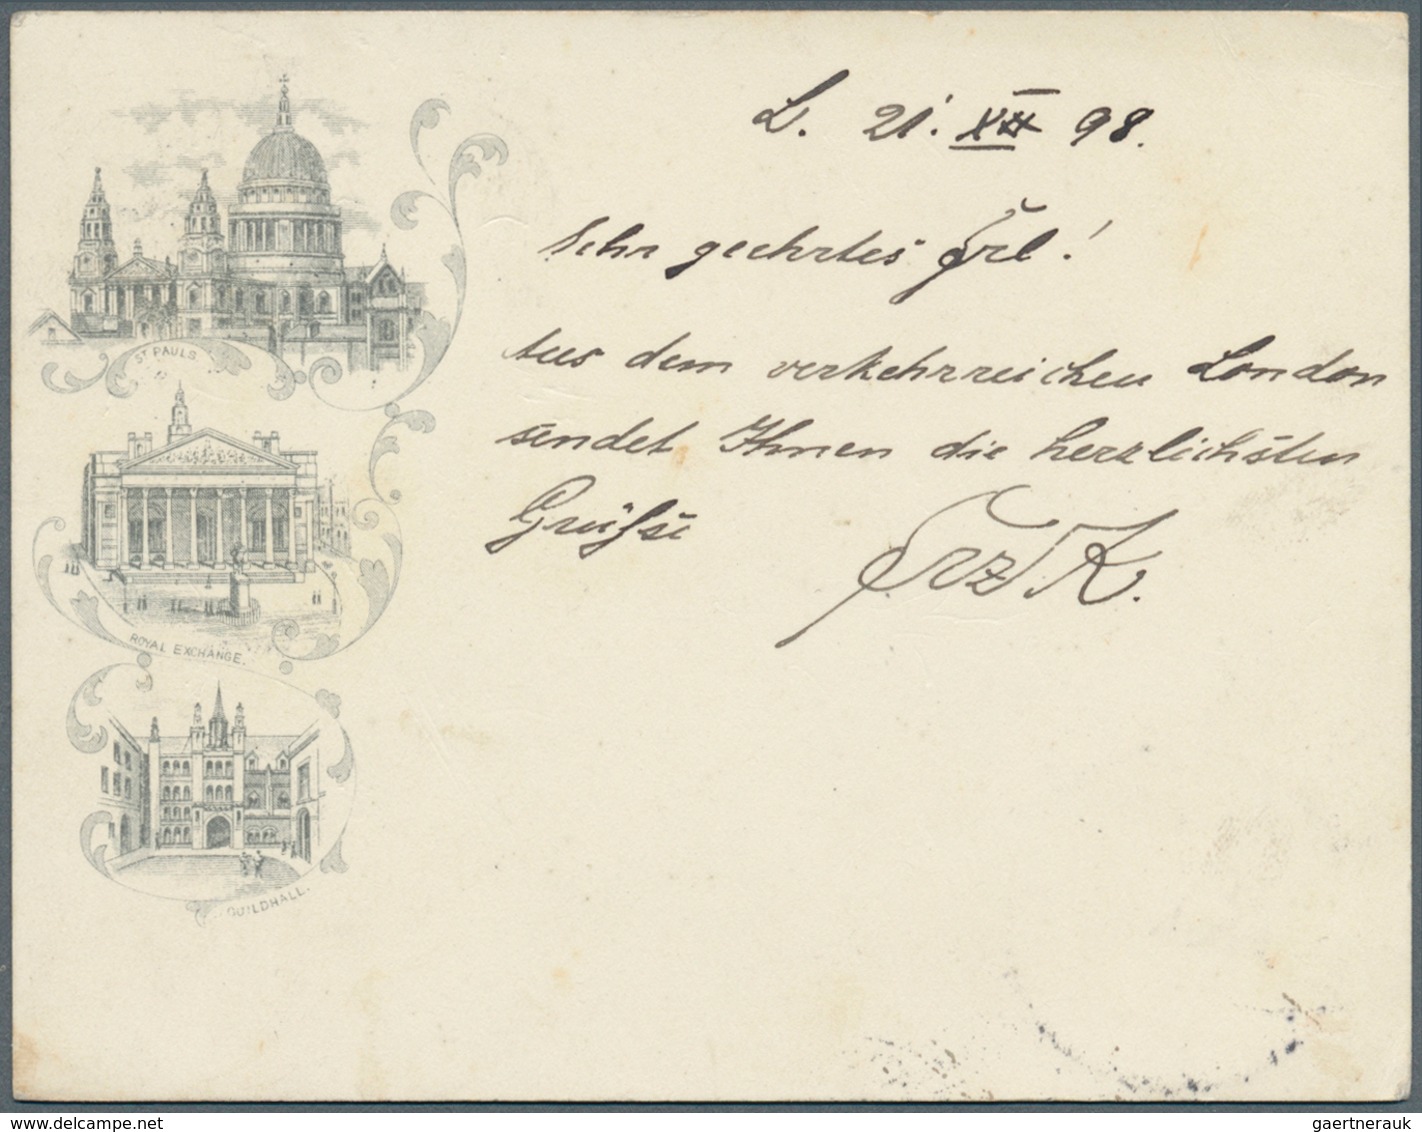 L. 21. XII 98.
Sehr geehrtes Frl!
Aus dem verkehrreichen London
sendet Ihnen die herzlichsten
Grüße
Frz K.
ST PAULS.
ROYAL EXCHANGE.
GUILDHALL.
gaertnerauk / delcampe.net